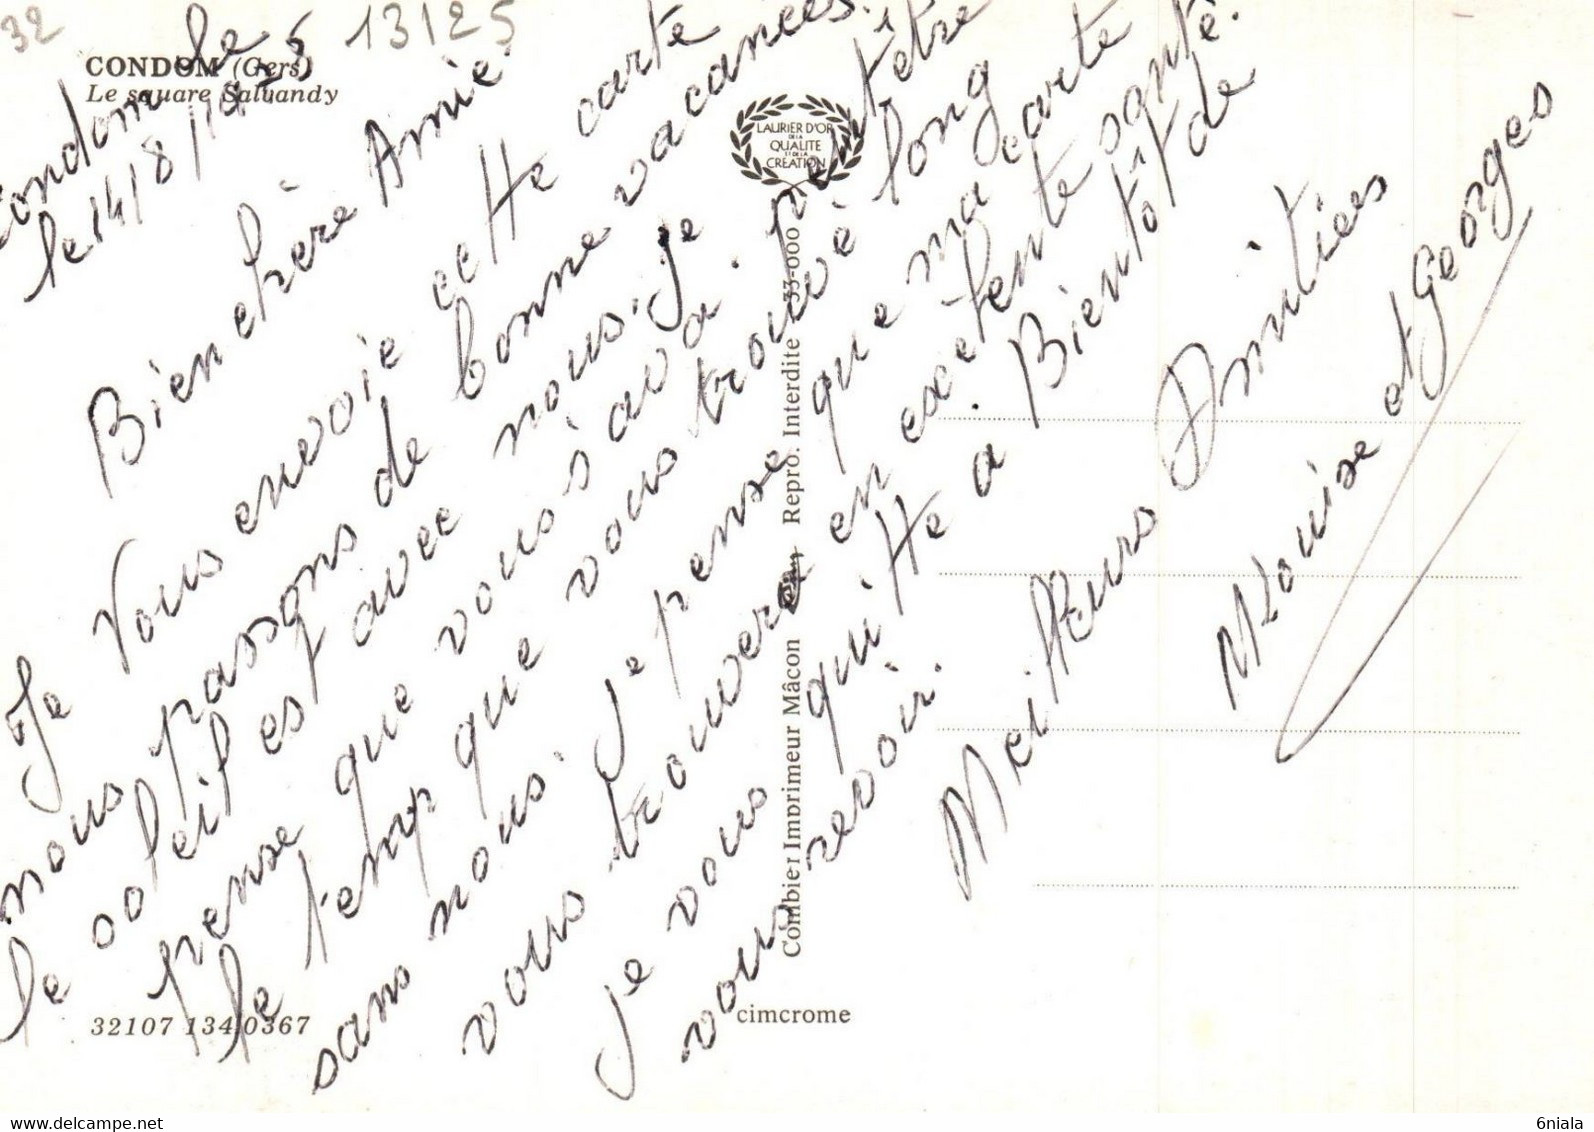 32
13125
CONDOM (Gers)
Le square Salvandy
Condom le
le 14/8/1975
Bien chère Amie.
Je vous envoie cette carte
nous passons de bonne vacances.
le soleil est avec nous. Je
pense que vous s'ava. peut être
le temp que vous trouvé long
sans nous. Je pense que ma carte
vous trouvera en exelente santé.
Je vous quitte a Bientôt de
vous revoir.
Meilleurs Amitiées
M Louise et Georges
LAURIER D'OR
DE LA
QUALITE
ET DE LA
CREATION
Combier Imprimeur Mâcon
Repro. Interdite 33-000
32107 134 0367
cimcrome
6niala